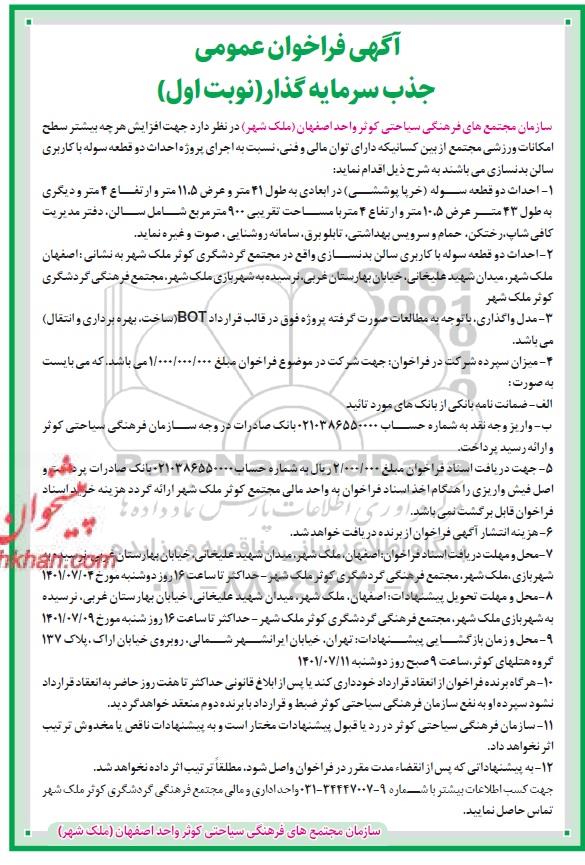 آگهی فراخوان عمومی
جذب سرمایه گذار (نوبت اول)
سازمان مجتمع های فرهنگی سیاحتی کوثر واحد اصفهان (ملک شهر) در نظر دارد جهت افزایش هرچه بیشتر سطح
امکانات ورزشی مجتمع از بین کسانیکه دارای توان مالی و فنی، نسبت به اجرای پروژه احداث دو قطعه سوله با کاربری
سالن بدنسازی می باشند به شرح ذیل اقدام نماید:
۱- احداث دو قطعه سوله (خرپا پوششی) در ابعادی به طول ۴۱ متر و عرض ۱۱،۵ متر و ارتفاع ۴ متر و دیگری
به طول ۴۳ متر عرض ۱۰،۵ متر و ارتفاع ۴ متر با مساحت تقریبی ۹۰۰ متر مربع شامل سالن، دفتر مدیریت
کافی شاپ، رختکن، حمام و سرویس بهداشتی، تابلو برق، سامانه روشنایی، صوت و غیره نماید.
۲- احداث دو قطعه سوله با کاربری سالن بدنسازی واقع در مجتمع گردشگری کوثر ملک شهر به نشانی : اصفهان
ملک شهر، میدان شهید علیخانی، خیابان بهارستان غربی، نرسیده به شهربازی ملک شهر، مجتمع فرهنگی گردشگری
کوثر ملک شهر
۳- مدل واگذاری، با توجه به مطالعات صورت گرفته پروژه فوق در قالب قرارداد BOT (ساخت، بهره برداری و انتقال)
می باشد.
۴- میزان سپرده شرکت در فراخوان: جهت شرکت در موضوع فراخوان مبلغ ۱/۰۰۰/۰۰۰/۰۰۰ می باشد. که می بایست
به صورت:
الف- ضمانت نامه بانکی از بانک های مورد تائید
ب- واریز وجه نقد به شماره حساب ۰۲۱۰۳۸۶۵۵۰۰۰۰ بانک صادرات در وجه سازمان فرهنگی سیاحتی کوثر
و ارائه رسید پرداخت.
۵- جهت دریافت اسناد فراخوان مبلغ ۲/۰۰۰/۰۰۰ ریال به شماره حساب ۰۲۱۰۳۸۶۵۵۰۰۰۰ بانک صادرات پرداخت و
اصل فیش واریزی را هنگام اخذ اسناد فراخوان به واحد مالی مجتمع کوثر ملک شهر ارائه گردد هزینه خرید اسناد
فراخوان قابل برگشت نمی باشد.
۶- هزینه انتشار آگهی فراخوان از برنده دریافت خواهد شد.
۷- محل و مهلت دریافت اسناد فراخوان: اصفهان، ملک شهر، میدان شهید علیخانی، خیابان بهارستان غربی، نرسیده به
شهربازی ملک شهر، مجتمع فرهنگی گردشگری کوثر ملک شهر - حداکثر تا ساعت ۱۶ روز دوشنبه مورخ ۱۴۰۱/۰۷/۰۴
۸- محل و مهلت تحویل پیشنهادات: اصفهان، ملک شهر، میدان شهید علیخانی، خیابان بهارستان غربی، نرسیده
به شهربازی ملک شهر، مجتمع فرهنگی گردشگری کوثر ملک شهر - حداکثر تا ساعت ۱۶ روز شنبه مورخ ۱۴۰۱/۰۷/۰۹
۹- محل و زمان بازگشایی پیشنهادات: تهران، خیابان ایرانشهر شمالی، روبروی خیابان اراک، پلاک ۱۳۷
گروه هتلهای کوثر، ساعت ۹ صبح روز دوشنبه ۱۴۰۱/۰۷/۱۱
۱۰- هرگاه برنده فراخوان از انعقاد قرارداد خودداری کند یا پس از ابلاغ قانونی حداکثر تا هفت روز حاضر به انعقاد قرارداد
نشود سپرده او به نفع سازمان سیاحتی کوثر ضبط و قرارداد با برنده دوم منعقد خواهد گردید.
۱۱- سازمان فرهنگی سیاحتی کوثر در رد یا قبول پیشنهادات مختار است و به پیشنهادات ناقص یا مخدوش ترتیب
اثر نخواهد داد.
۱۲- به پیشنهاداتی که پس از انقضاء مدت مقرر در فراخوان واصل شود، مطلقاً ترتیب اثر داده نخواهد شد.
جهت کسب اطلاعات بیشتر با شماره ۹-۳۴۴۴۷۰۰۷-۰۳۱ واحد اداری و مالی مجتمع فرهنگی گردشگری کوثر ملک شهر
تماس حاصل نمایید.
سازمان مجتمع های فرهنگی سیاحتی کوثر واحد اصفهان (ملک شهر)